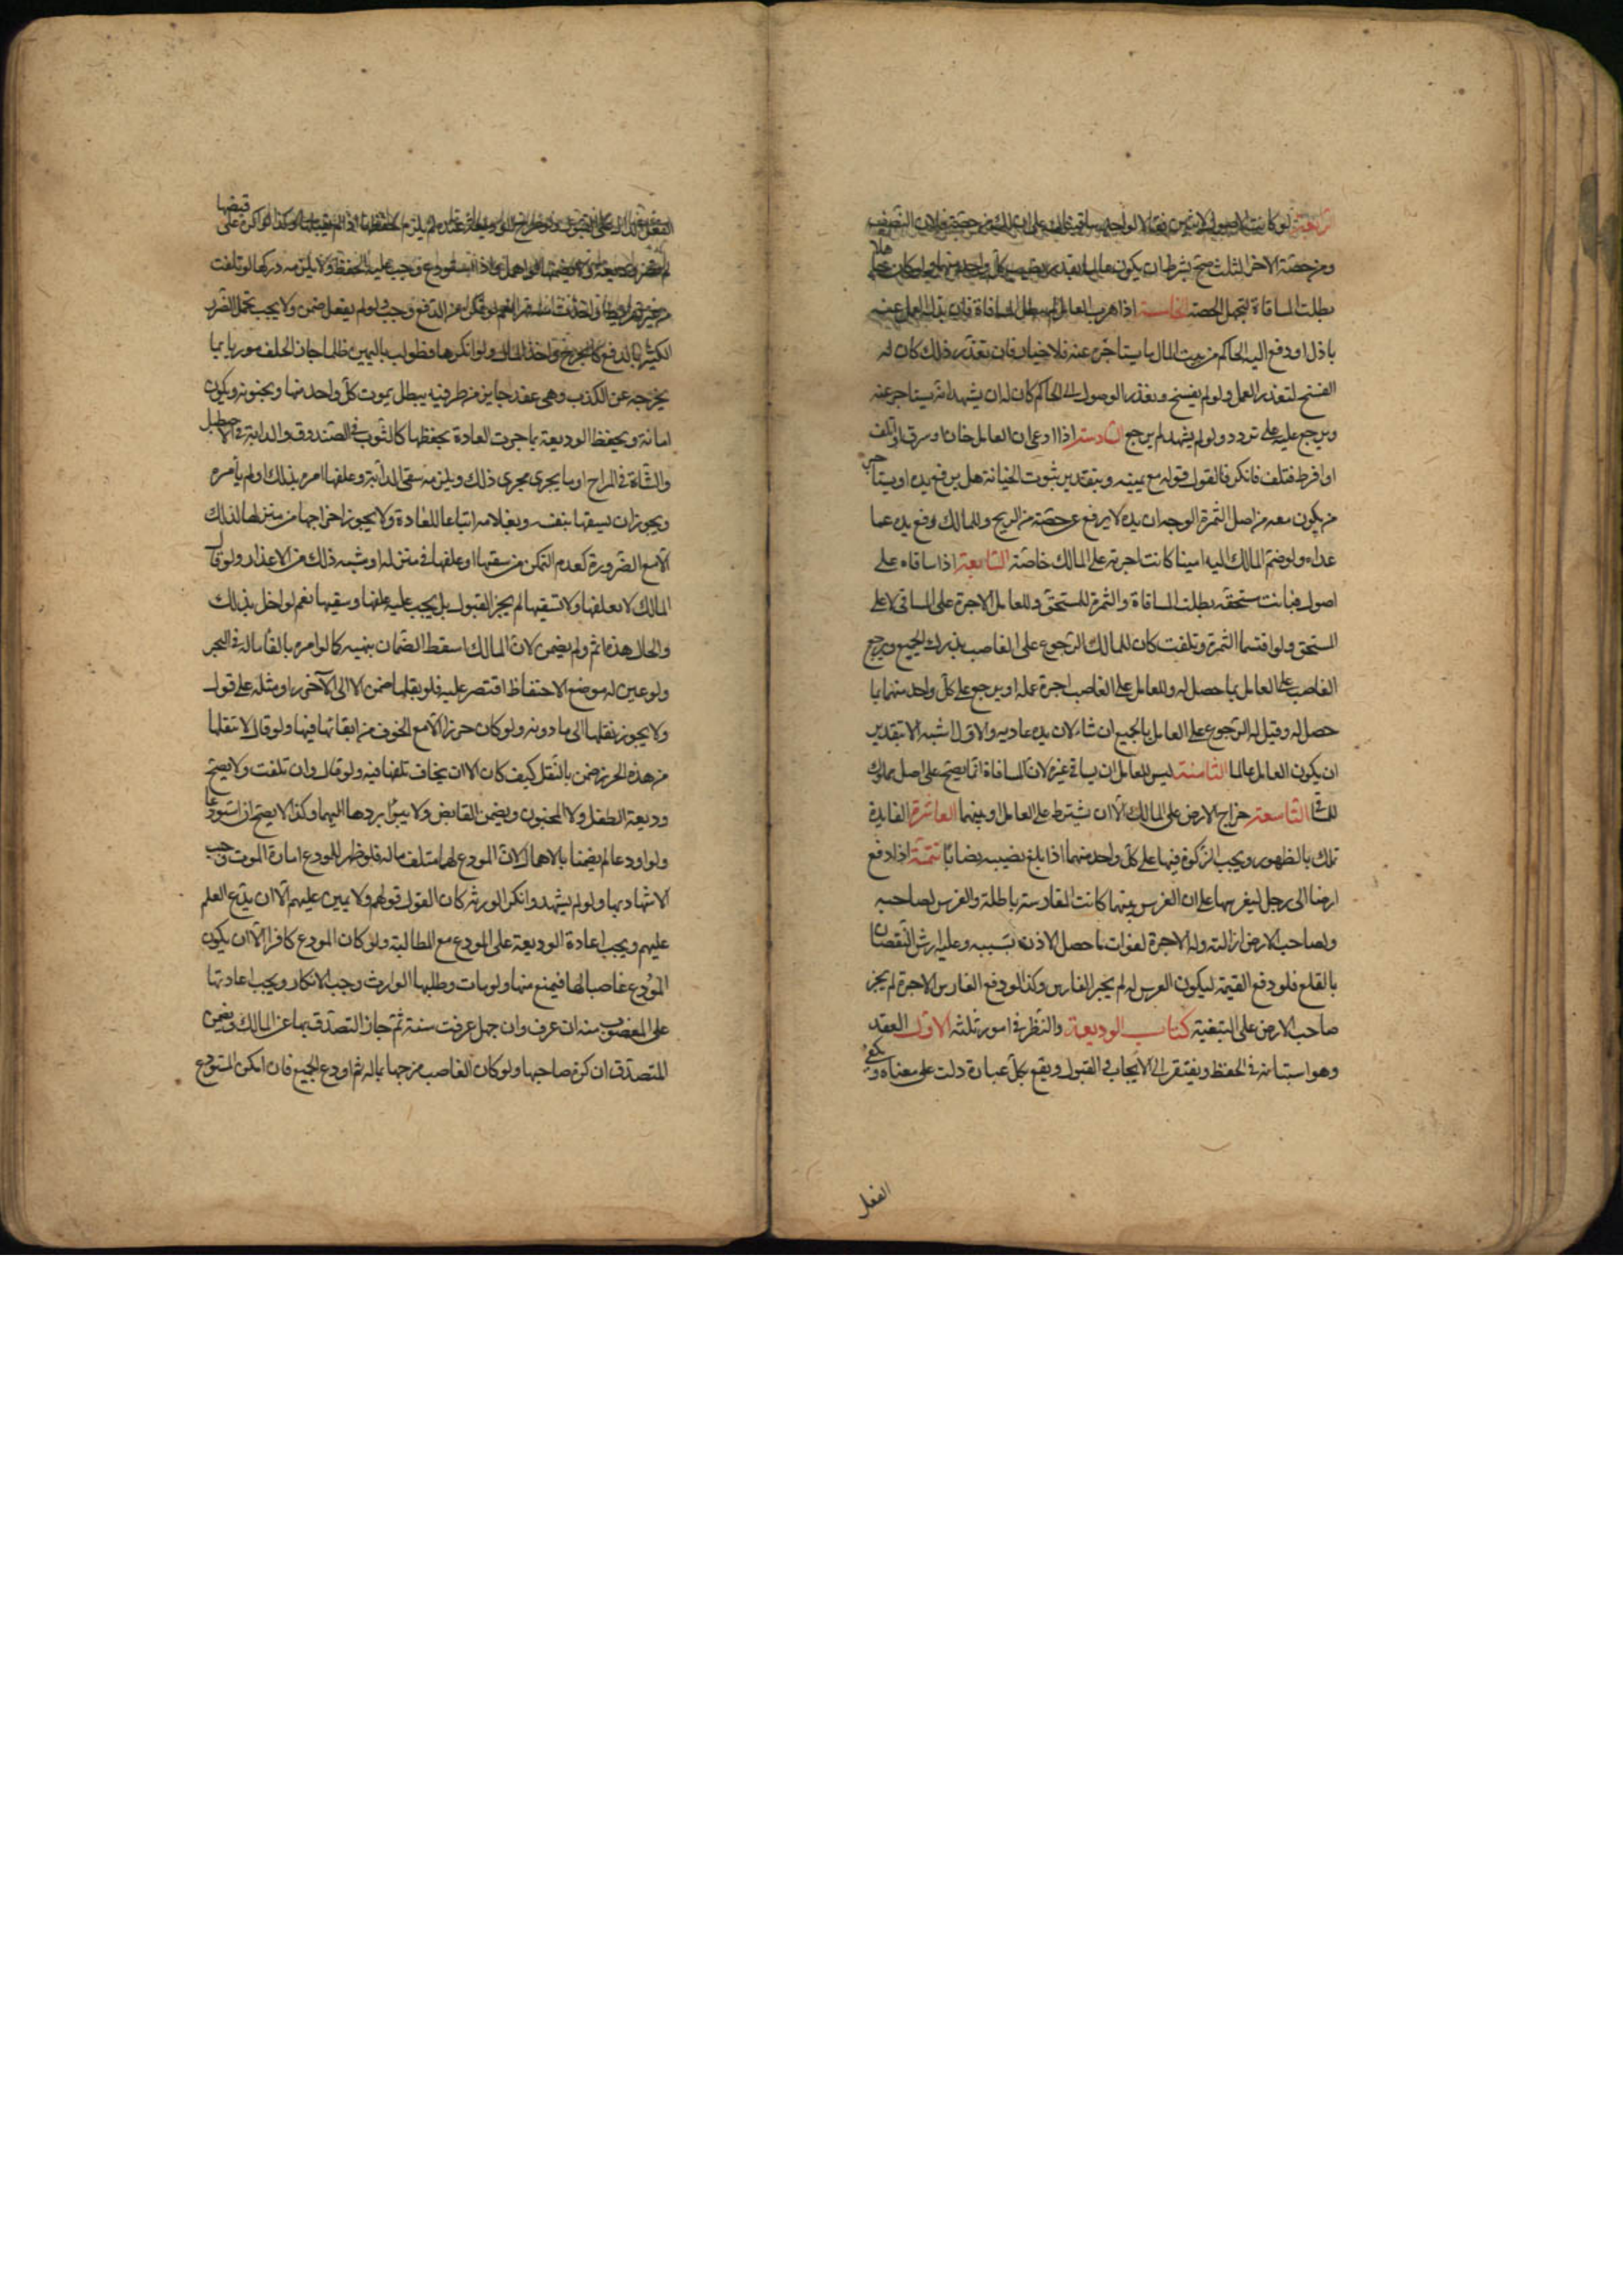 الرابعة لو كانت الاصول لاثنين فقالا لواحد ساقيناك على ان لك من حصة فلان النصف
ومن حصة الاخر الثلث صح بشرط ان يكون عالما بقدر نصيب كل واحد منهما ولو كان جاهلا
بطلت المساقاة لتجهل الحصة الخامسة اذا هرب العامل لم تبطل المساقاة فان بذل العمل عنه
باذل او دفع اليه الحاكم من بيت المال ما يستاجر عنه فلا خيار فان تعذر ذلك كان له
الفسخ لتعذر العمل ولو لم يفسخ وتعذر الوصول الى الحاكم كان له ان يشهد انه يستاجر عنه
ويرجع عليه على تردد ولو لم يشهد لم يرجع السادسة اذا ادعى ان العامل خان او سرق او اتلف
او افرط فتلف فانكر فالقول قوله مع يمينه وبتقدير ثبوت الخيانة هل يرفع يده او يستاجر
من يكون معه من اصل الثمرة الوجه ان يده لا يرفع عن حصته من الربح وللمالك رفع يده عما
عداه ولو ضم المالك اليه امينا كانت اجرته على المالك خاصة السابعة اذا ساقاه على
اصول فبانت مستحقه بطلت المساقاة والثمرة للمستحق وللعامل الاجرة على المساقى لا على
المستحق ولو اقتسما الثمرة وتلفت كان للمالك الرجوع على الغاصب بدرك الجميع ويرجع
الغاصب على العامل بما حصل له وللعامل على الغاصب اجرة عمله او يرجع على كل واحد منهما بما
حصل له وقيل له الرجوع على العامل بالجميع ان شاء لان يده عادية والاول اشبه الا بتقدير
ان يكون العامل عالما الثامنة ليس للعامل ان يساقي غيره لان المساقاة انما يصح على اصل مملوك
للمساقي التاسعة خراج الارض على المالك الا ان يشترط على العامل او بينهما العاشرة الفايدة
تملك بالظهور ويجب الزكوة فيها على كل واحد منهما اذا بلغ نصيبه نصابا تتمة اذا دفع
ارضا الى رجل ليغرسها على ان الغرس بينهما كانت المغارسة باطلة والغرس لصاحبه
ولصاحب الارض ازالته وله الاجرة لفوات ما حصل الاذن بسببه وعليه ارش النقصان
بالقلع فلو دفع القيمة ليكون الغرس له لم يجبر الغارس وكذا لو دفع الغارس الاجرة لم يجبر
صاحب الارض على التبقية كتاب الوديعة والنظر في امور ثلثة الاول العقد
وهو استنابة في الحفظ ويفتقر الى الايجاب والقبول ويقع بكل عبارة دلت على معناه ويكفي
الفعل
الفعل الدال على القبول ولو طرح الوديعة عنده لم يلزم حفظها اذا لم يقبلها وكذا لو اكره على قبضها
لم تصر وديعة ولا يضمنها لو اهمل واذا استودع وجب عليه الحفظ ولا يلزمه دركها لو تلفت
من غير تفريط او اخذت منه قهرا نعم لو تمكن من الدفع وجب ولو لم يفعل ضمن ولا يجب تحمل الضرر
الكثير بالدفع كالجرح واخذ المال ولو انكرها فطولب باليمين ظلما جاز الحلف موريا بما
يخرجه عن الكذب وهى عقد جايز من طرفيه يبطل بموت كل واحد منهما وبجنونه ويكون
امانة ويحفظ الوديعة بما جرت العادة بحفظها كالثوب في الصندوق والدابة في الاصطبل
والشاة في المراح او ما يجرى مجرى ذلك ويلزمه سقى الدابة وعلفها امره بذلك او لم يأمره
ويجوز ان يسقيها بنفسه وبغلامه اتباعا للعادة ولا يجوز اخراجها من منزله لذلك
الا مع الضرورة كعدم التمكن من سقيها او علفها في منزله او شبه ذلك من الاعذار ولو قال
المالك لا تعلفها ولا تسقيها لم يجز القبول بل يجب عليه علفها وسقيها نعم لو اخل بذلك
والحال هذه اثم ولم يضمن لان المالك اسقط الضمان بنهيه كما لو امره بالقاء ماله في البحر
ولو عين له موضع الاحتفاظ اقتصر عليه فلو نقلها ضمن الا الى الآحرز او مثله على قول
ولا يجوز نقلها الى ما دونه ولو كان حرزا الا مع الخوف من ابقائها فيها ولو قال لا تنقلها
من هذه الحرز ضمن بالنقل كيف كان الا ان يخاف تلفها فيه ولو قال وان تلفت ولا يصح
وديعة الطفل ولا المجنون ويضمن القابض ولا يبرأ بردها اليهما وكذا لا يصح ان استودعا
ولو اودعا لم يضمنا بالاهمال لان المودع لهما متلف ماله فلو ظهر للمودع امارة الموت وجب
الاشهاد بها ولو لم يشهد وانكر الورثه كان القول قولهم ولا يمين عليهم الا ان يدع العلم
عليهم ويجب اعادة الوديعة على المودع مع المطالبة ولو كان المودع كافرا الا ان يكون
المودع غاصبا لها فيمنع منها ولو مات وطلبها الوارث وجب الانكار ويجب اعادتها
على المغصوب منه ان عرف وان جهل عرفت سنة ثم جاز التصدق بها عن المالك ويضمن
المتصدق ان كره صاحبها ولو كان الغاصب مزجها بماله ثم اودع الجميع فان امكن المستودع